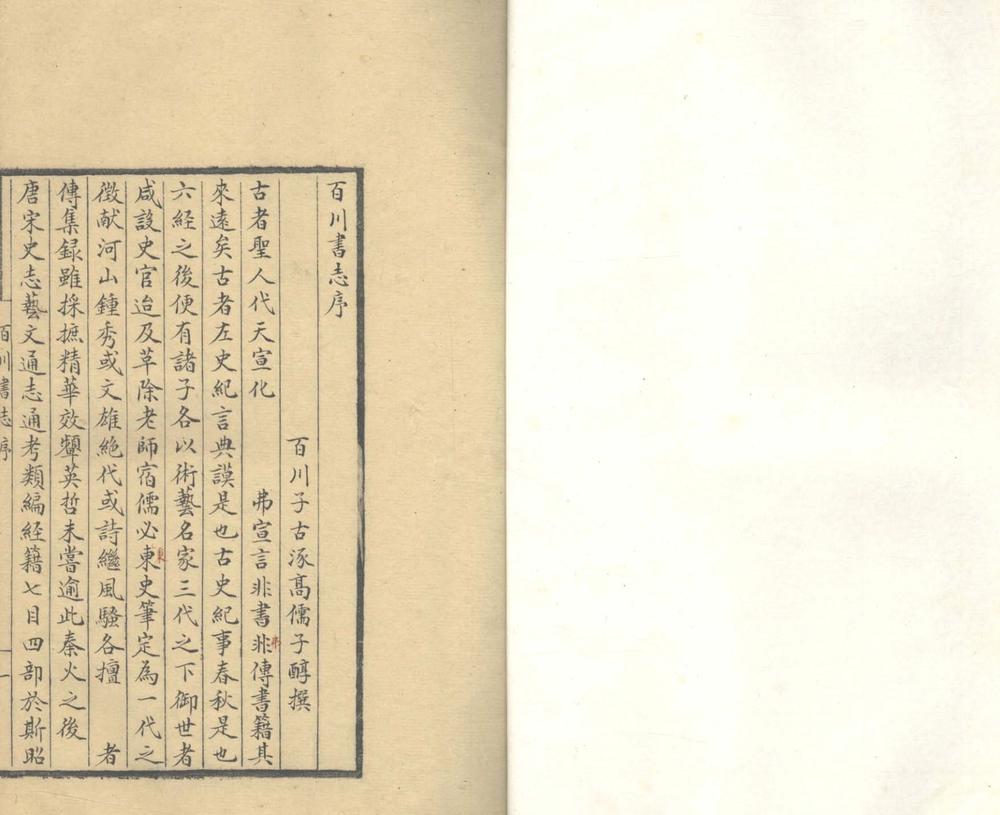 百川書志序
百川子古涿高儒子醇撰
古者聖人代天宣化　　　弗宣言非書非傳書籍其
來遠矣古者左史紀言典謨是也古史紀事春秋是也
六經之後便有諸子各以術藝名家三代之下御世者
咸設史官迨及草除老師宿儒必東史筆定為一代之
徴献河山鍾秀或文雄絶代或詩繼風騷各擅　　者
傳集録雖採摭精華效顰英哲未嘗逾此秦火之後
唐宋史志藝文通志通考類編経籍七目四部於斯昭
百川書志序
一